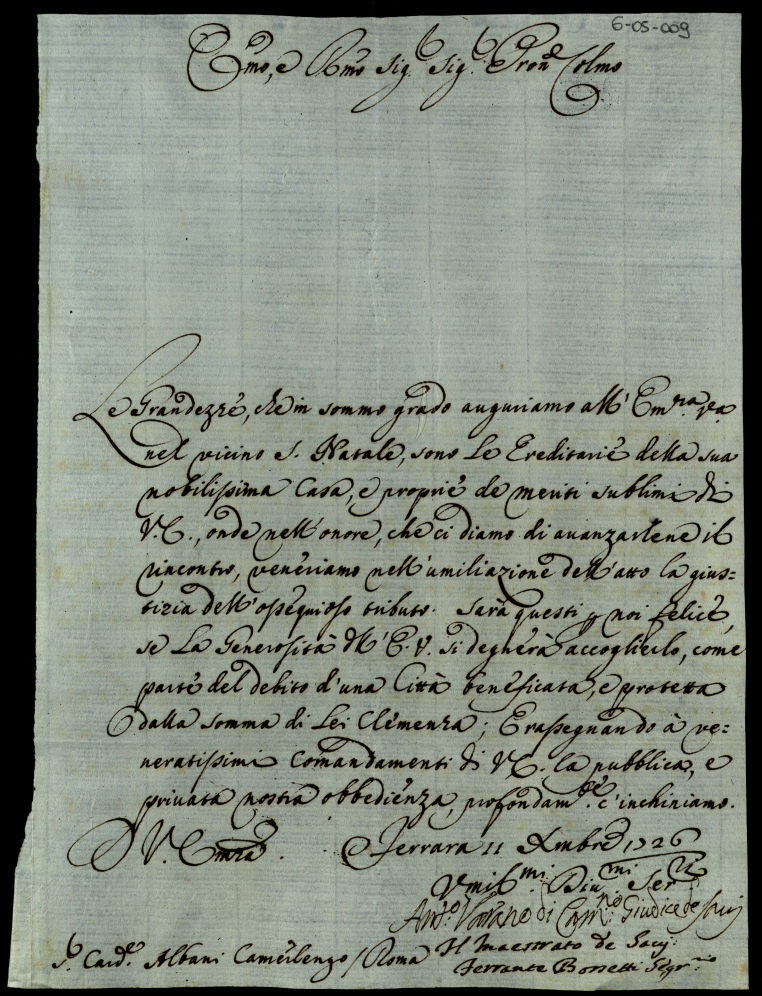 6-05-009
Emo, e Rmo Sig.r Sig.r Pron.e Colmo
Le Grandezze, che in sommo grado auguriamo all' Em.za V.ra
nel vicino S. Natale, sono Le Ereditarie della sua
nobilissima Casa, e proprie de meriti sublimi di
V. E., onde nell'onore, che ci diamo di avanzarlene il
rincontro, veneriamo nell'umiliazione dell'atto la gius=
tizia dell'ossequioso tributo. Sarà questi p noi felice,
se La Generosità dll' E. V. si degnerà accoglierlo, come
parte del debito d'una Città beneficata, e protetta
dalla somma di Lei Clemenza; E rassegnando à ve=
neratissimi Comandamenti di V. E. la pubblica, e
privata nostra obbedienza, profondam.te c'inchiniamo.
D V. Emza. Ferrara 11 Xmbre 1726
Vmil.mi Diu.mi Ser.ri
Ant.o Varano di Cam.no Giudice de Savij
Il Maestrato de Savj.
S.r Card.le Albani Camerlengo / Roma
Ferrante Borsetti Segr.rio